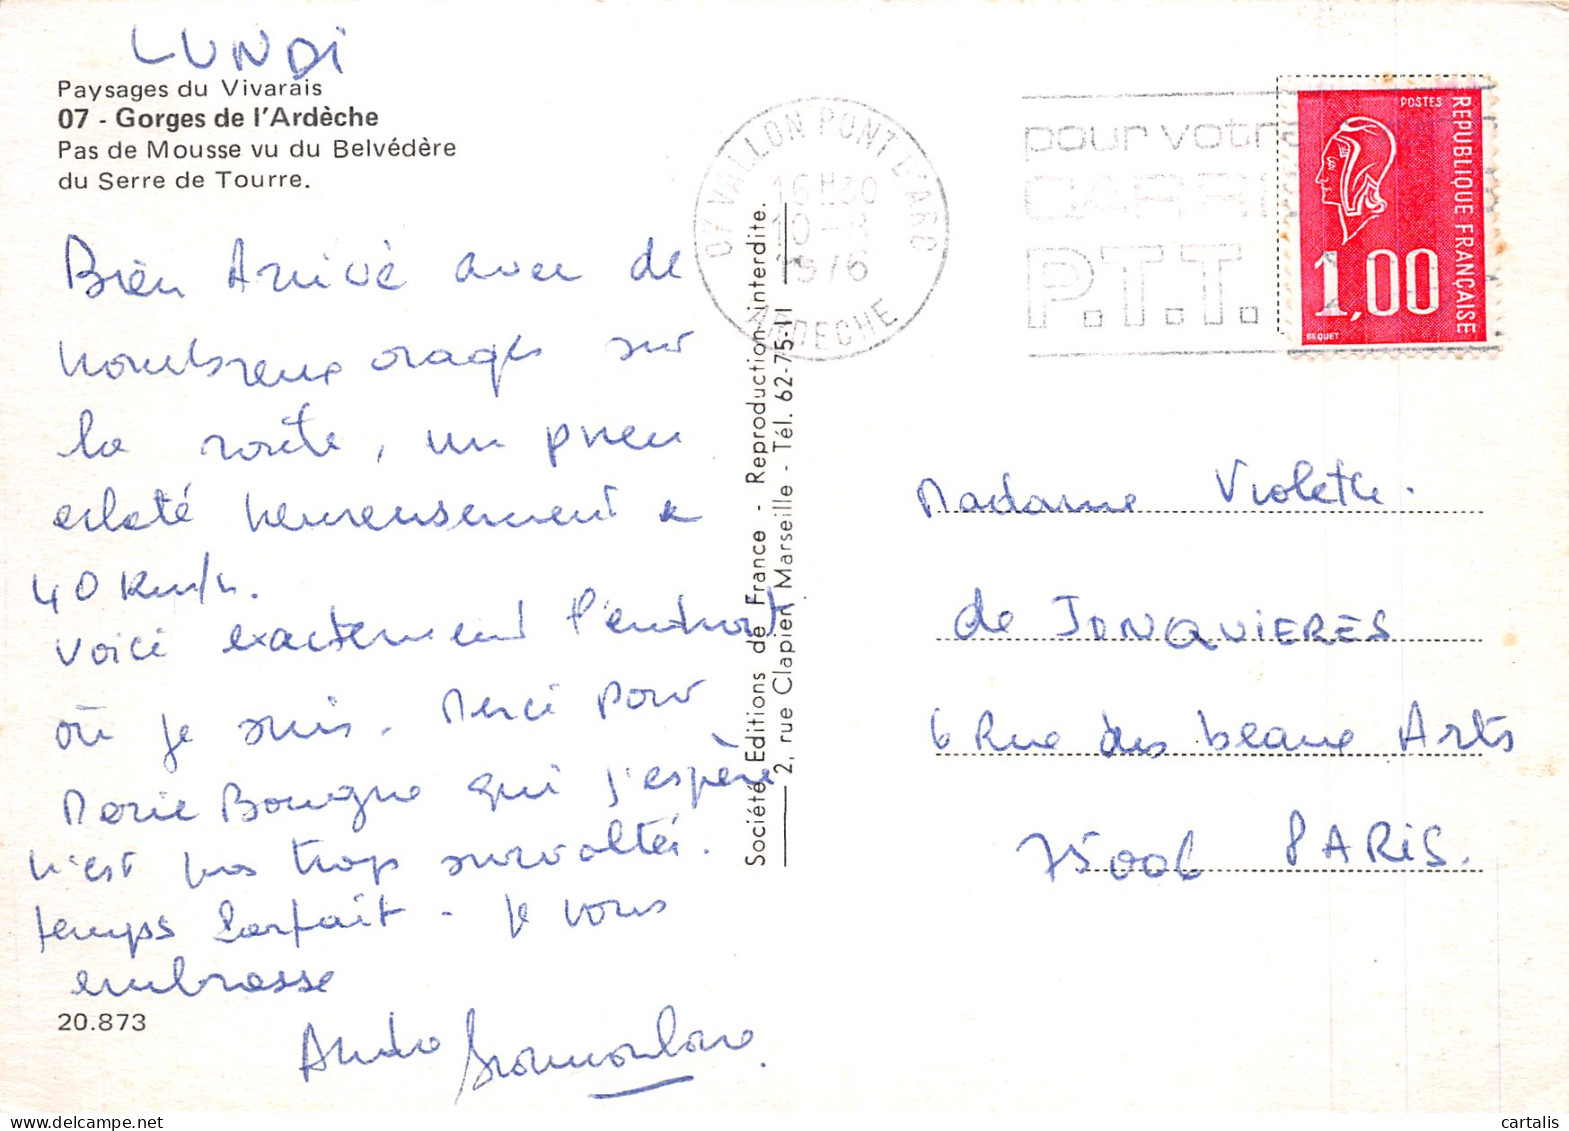 LUNDI
Paysages du Vivarais
07 - Gorges de l'Ardèche
Pas de Mousse vu du Belvédère
du Serre de Tourre.
Bien Arrivé avec de
nombreux orages sur
la route, un pneu
eclaté heureusement a
40 Km/h.
Voici exactement l'endroit
où je suis. Merci pour
Marie Bougne qui j'espère
n'est pas trop survoltée.
temps Parfait - Je vous
embrasse
20.873
Société Editions de France - Reproduction interdite.
2, rue Clapier Marseille - Tél. 62-75-11
07 VALLON PONT D'ARC
16H30
10-8
1976
ARDECHE
pour votre
CARRI
P.T.T.
POSTES
REPUBLIQUE FRANÇAISE
1,00
BEQUET
Madame Violette.
de JONQUIERES
6 Rue des beaux Arts
75006 PARIS.
cartalis